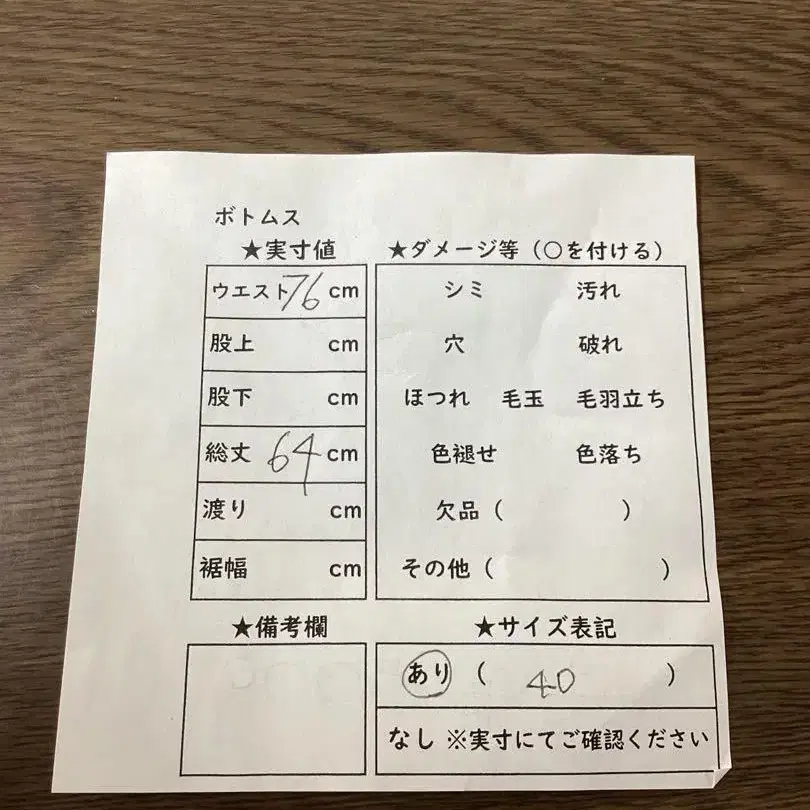 ボトムス
★実寸値
ウエスト76cm
股上 cm
股下 cm
総丈 64cm
渡り cm
裾幅 cm
★ダメージ等（○を付ける）
シミ 汚れ
穴 破れ
ほつれ 毛玉 毛羽立ち
色褪せ 色落ち
欠品（ ）
その他（ ）
★備考欄
★サイズ表記
あり（ 40 ）
なし ※実寸にてご確認ください